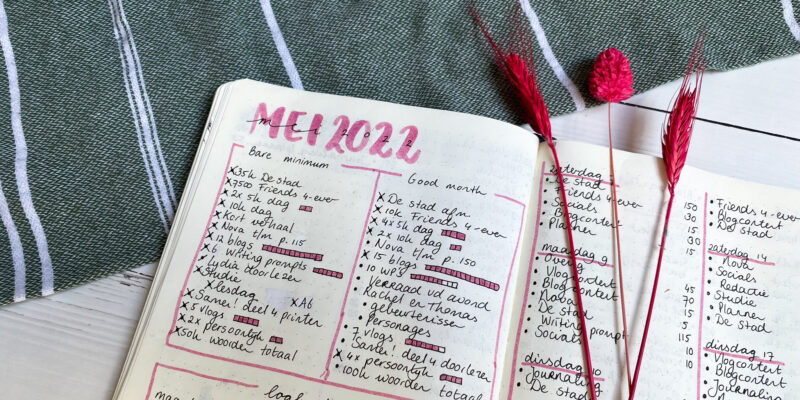 MEI 2022
mei 2022
Bare minimum
x 35k De stad
x 7500 Friends 4-ever
x 2x 5k dag
x 10k dag
x Kort verhaal
x Nova t/m p. 115
x 12 blogs
x 6 Writing prompts
x Lydia doorlezen
x Studie
x lesdag x A6
x Samen! deel 4 printen
x 5 vlogs
x 2x persoonlijk
x 50k woorden totaal
Good month
x De stad afm
x 10k Friends 4-ever
x 4x 5k dag
x 2x 10k dag
• Nova t/m p. 150
x 15 blogs
• 10 WPs
• Verraad vd avond
• Rachel en Thomas
• gebeurtenissen
Personages
x 7 vlogs
• Samen! deel 4 doorlezen
x 4x persoonlijk
x 100k woorden totaal
zaterdag
• De stad
• Friends 4-ever
• Socials
• Blogcontent
• Planner
maandag 9
• Overig
• Vlogcontent
• Blogcontent
• Nova
• De stad
• Writing prompt
• Socials
dinsdag 10
• Journaling
• De stad
150
150
130
15
45
70
15
5
115
• Friends 4-ever
• Blogcontent
• De stad
zaterdag 14
• Nova
• Socials
• Redactie
• Studie
• Planner
• De stad
dinsdag 17
• Vlogcontent
• Blogcontent
• Journaling